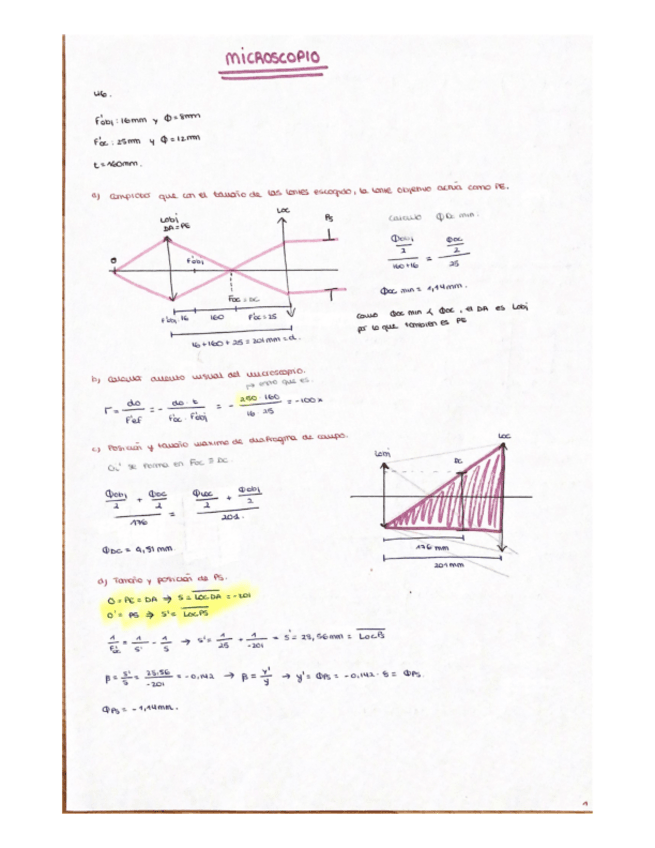 MICROSCOPIO
46.
F'obj: 16mm y Φ=8mm
F'oc: 25mm y Φ=12mm
t=160mm.
a) Comprobar que con el tamaño de las lentes escogido, la lente objetivo actúa como PE.
Lobj
DA=PE
Loc
Ps
O
F'obj
Foc = DC
f'obj=16 160 F'oc=25
16+160+25 = 201mm = d.
Calculo Φoc min:
Φobj/2 / 160+16 = Φoc/2 / 25
Φoc min = 1,14mm.
Como Φoc min < Φoc, el DA es Lobj
por lo que también es PE
b) Calcula aumento visual del microscopio.
Γ = do/F'ef = - do·t/F'oc·F'obj = - 250·160/16·25 = -100x
c) Posición y tamaño máximo de diafragma de campo.
O1' se forma en Foc ≡ DC.
Φobj/2 + ΦDC/2 / 176 = Φloc/2 + Φobj/2 / 201.
ΦDC = 4,91mm
Lobj
DC
Loc
176 mm
201mm
d) Tamaño y posición de PS.
O = PE = DA ⇒ S = LocDA = -201
O' = PS ⇒ S' = LocPS
1/F'oc = 1/S' - 1/S → S' = 1/25 + 1/-201 = S' = 28,56mm = LocPS
β = S'/S = 28.56/-201 = -0,142 → β = y'/y → y' = ΦPS = -0,142·8 = ΦPS.
ΦPS = -1,14mm.
1